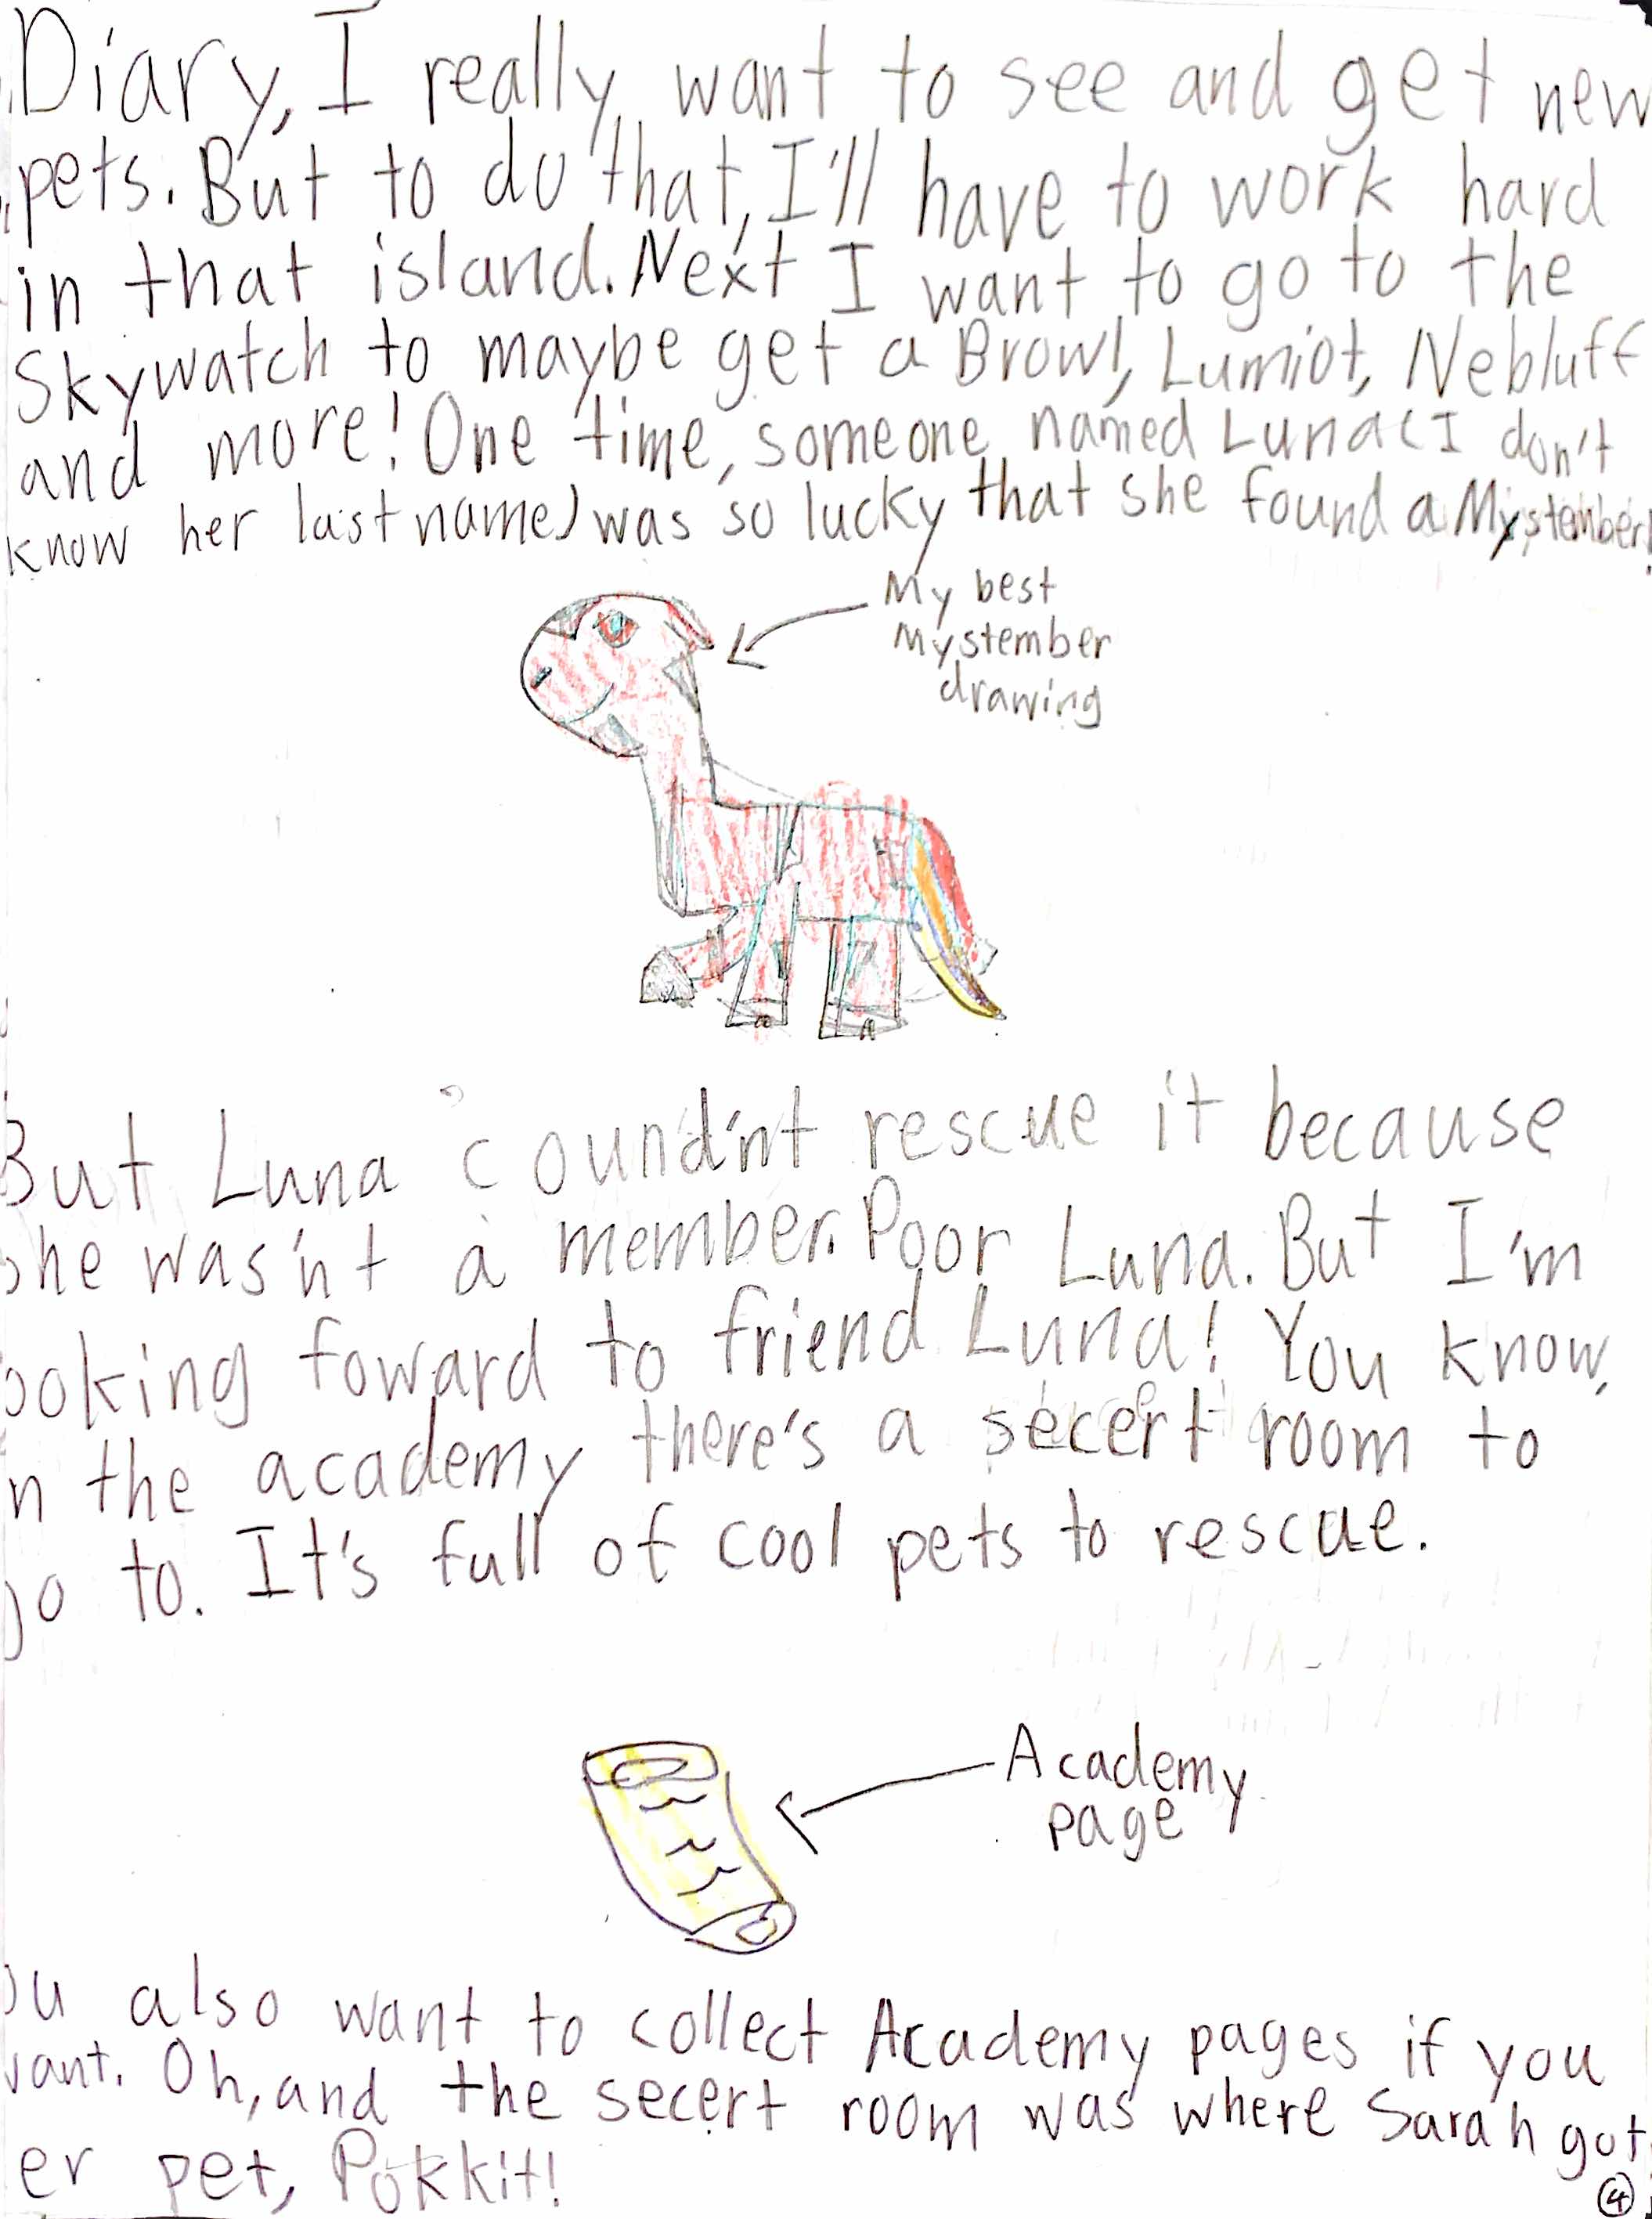 Diary, I really want to see and get new
pets. But to do that, I'll have to work hard
in that island. Next I want to go to the
Skywatch to maybe get a Browl, Lumiot, Nebluff
and more! One time, someone named Luna (I don't
know her last name) was so lucky that she found a Mystember!
My best
Mystember
drawing
But Luna coundn't rescue it because
she was'nt a member. Poor Luna. But I'm
ooking foward to friend Luna! You know,
n the academy there's a secert room to
go to. It's full of cool pets to rescue.
Academy
page
ou also want to collect Academy pages if you
want. Oh, and the secert room was where Sarah got
er pet, Pokkit!
4